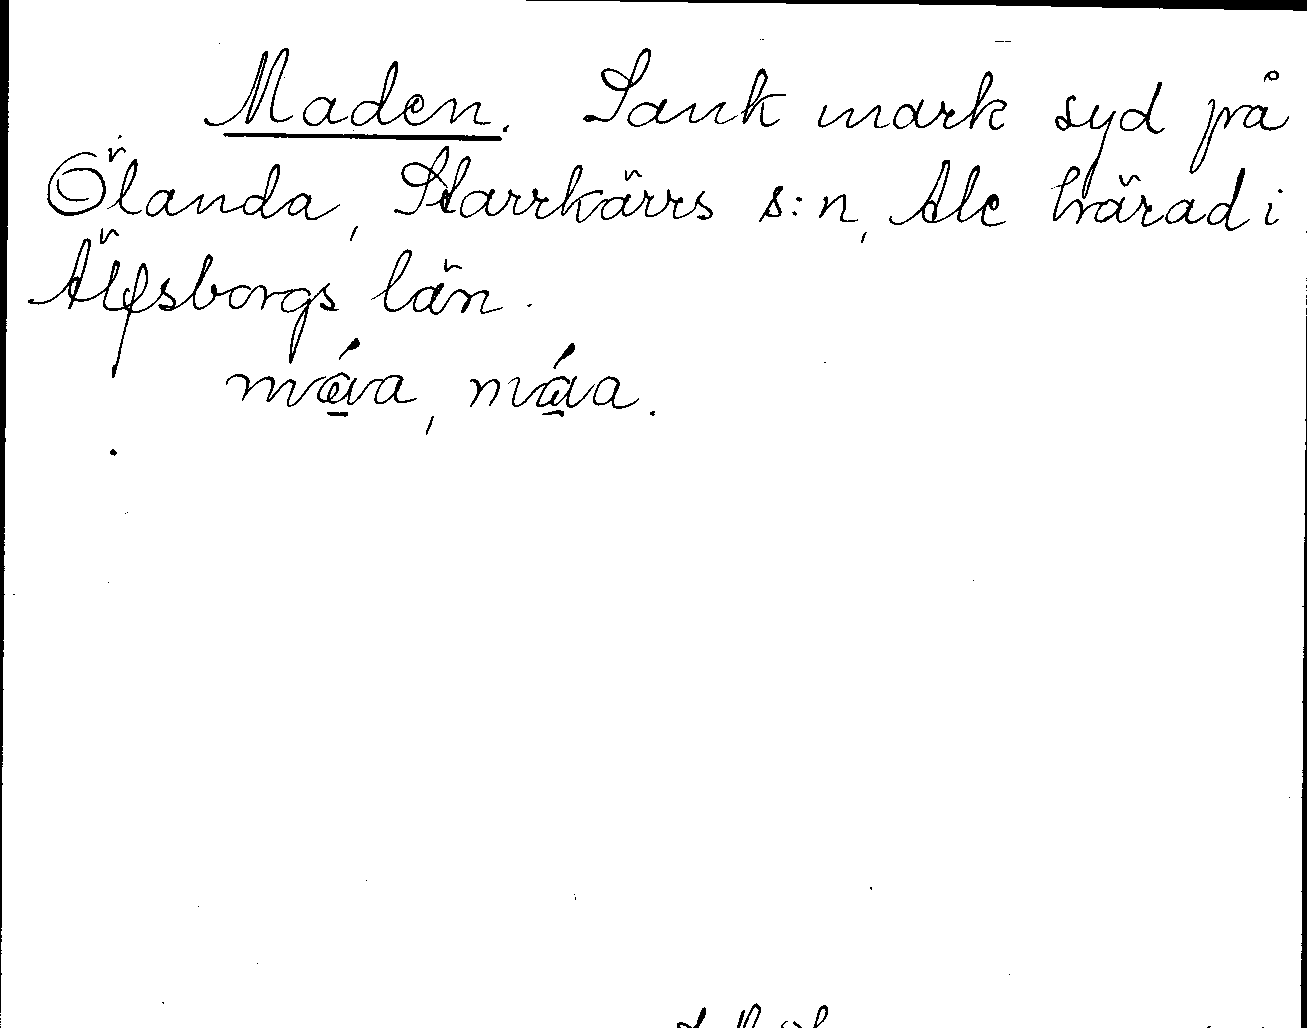 Maden. Sank mark syd på
Ölanda, Starrkärrs s:n, Ale härad i
Älfsborgs län.